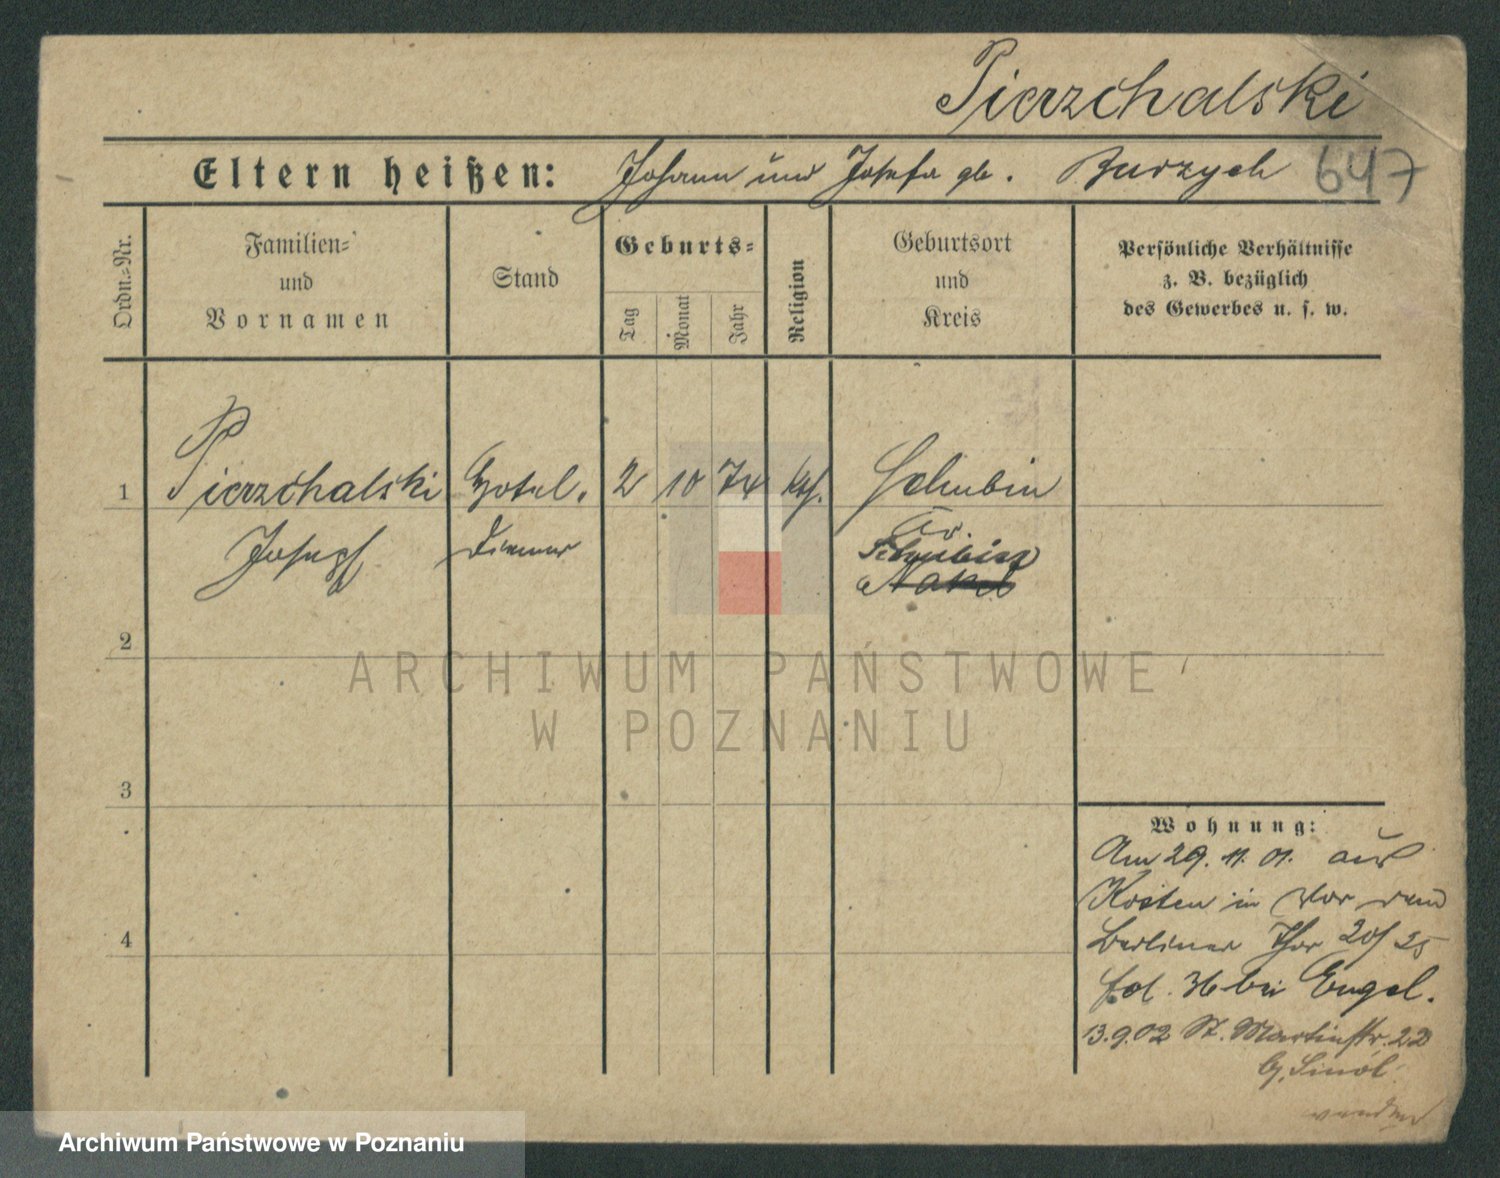 Pierzchalski
Eltern heißen: Johann und Josefa gb. Burzych 647
Ordn.-Nr.
Familien-
und
Vornamen
Stand
Geburts-
Tag
Monat
Jahr
Religion
Geburtsort
und
Kreis
Persönliche Verhältnisse
z. B. bezüglich
des Gewerbes u. s. w.
1 Pierzchalski Hotel. 2 10 74 kth. Schubin
Joseph diener Kr.
Schubin
Nakel
2
3
4
Wohnung:
Am 29. 11. 01. aus
Kosten in vor dem
Berliner Thor
fol. 36 bei Engel.
13.9.02 St. Martinstr. 22
b.
wenden
ARCHIWUM PAŃSTWOWE
W POZNANIU
Archiwum Państwowe w Poznaniu